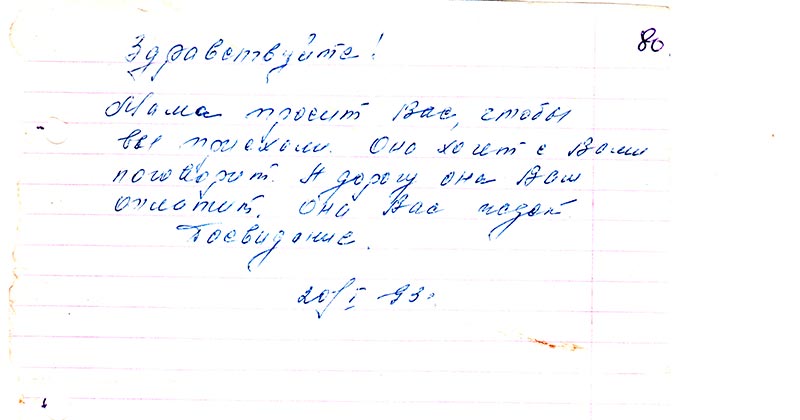 Здравствуйте!
80.
Мама просит Вас, чтобы
вы приехали. Она хочет с Вами
поговорит. А дорогу она Вам
оплатит. Она Вас
Досвидание.
20/I-93г.